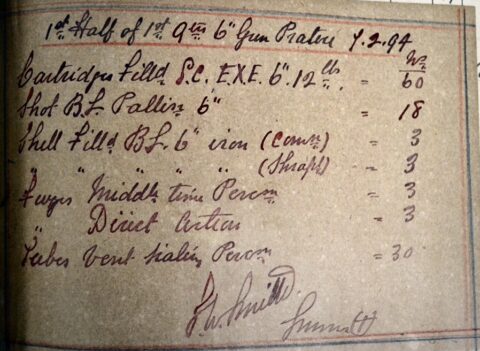 1st Half of 1st Qtr 6" Gun Practice 7.2.94
No
Cartridges Filld S.C. E.X.E. 6" 12 lbs = 60
Shot B.L. Palliser 6" = 18
Shell Filld B.L. 6" iron (Comn) = 3
" " " " " (Shrapl) = 3
Fuzes Middle time Percn = 3
" Direct Action = 3
Tubes Vent Sealing Percn = 30